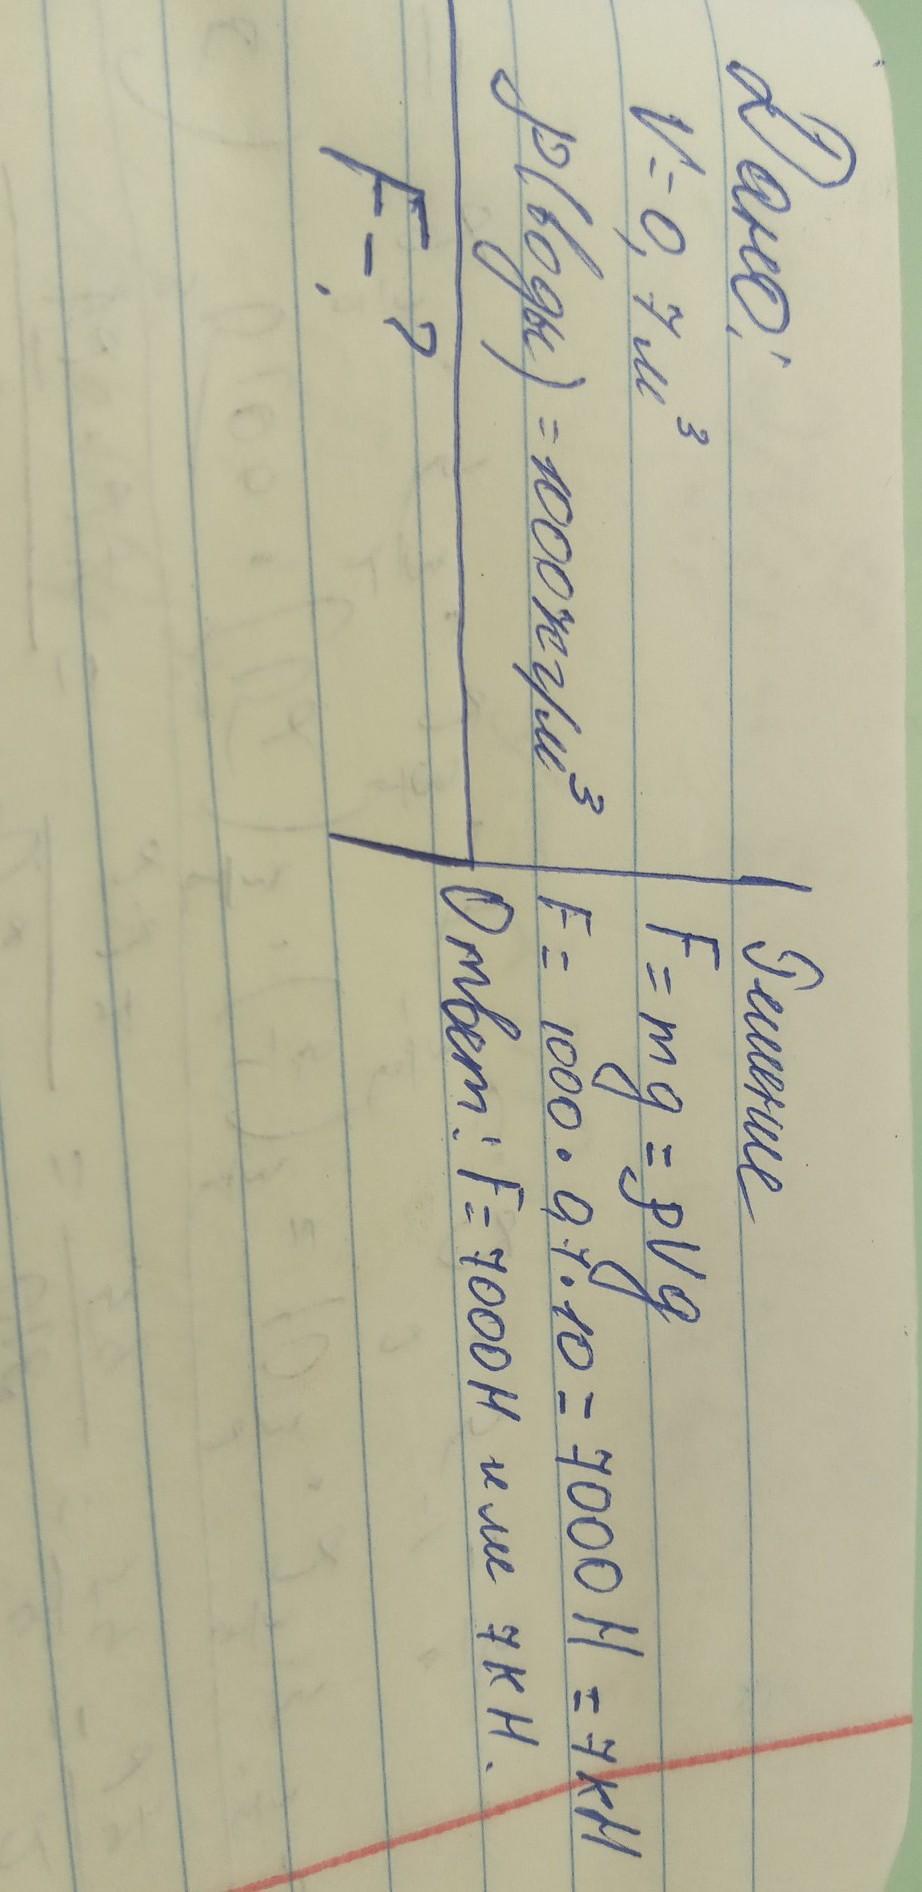 Дано:
V=0,7м³
ρ(воды)=1000кг/м³
F-?
Решение
F=mg=ρVg
F=1000·0,7·10=7000Н=7кН
Ответ: F=7000Н или 7кН.